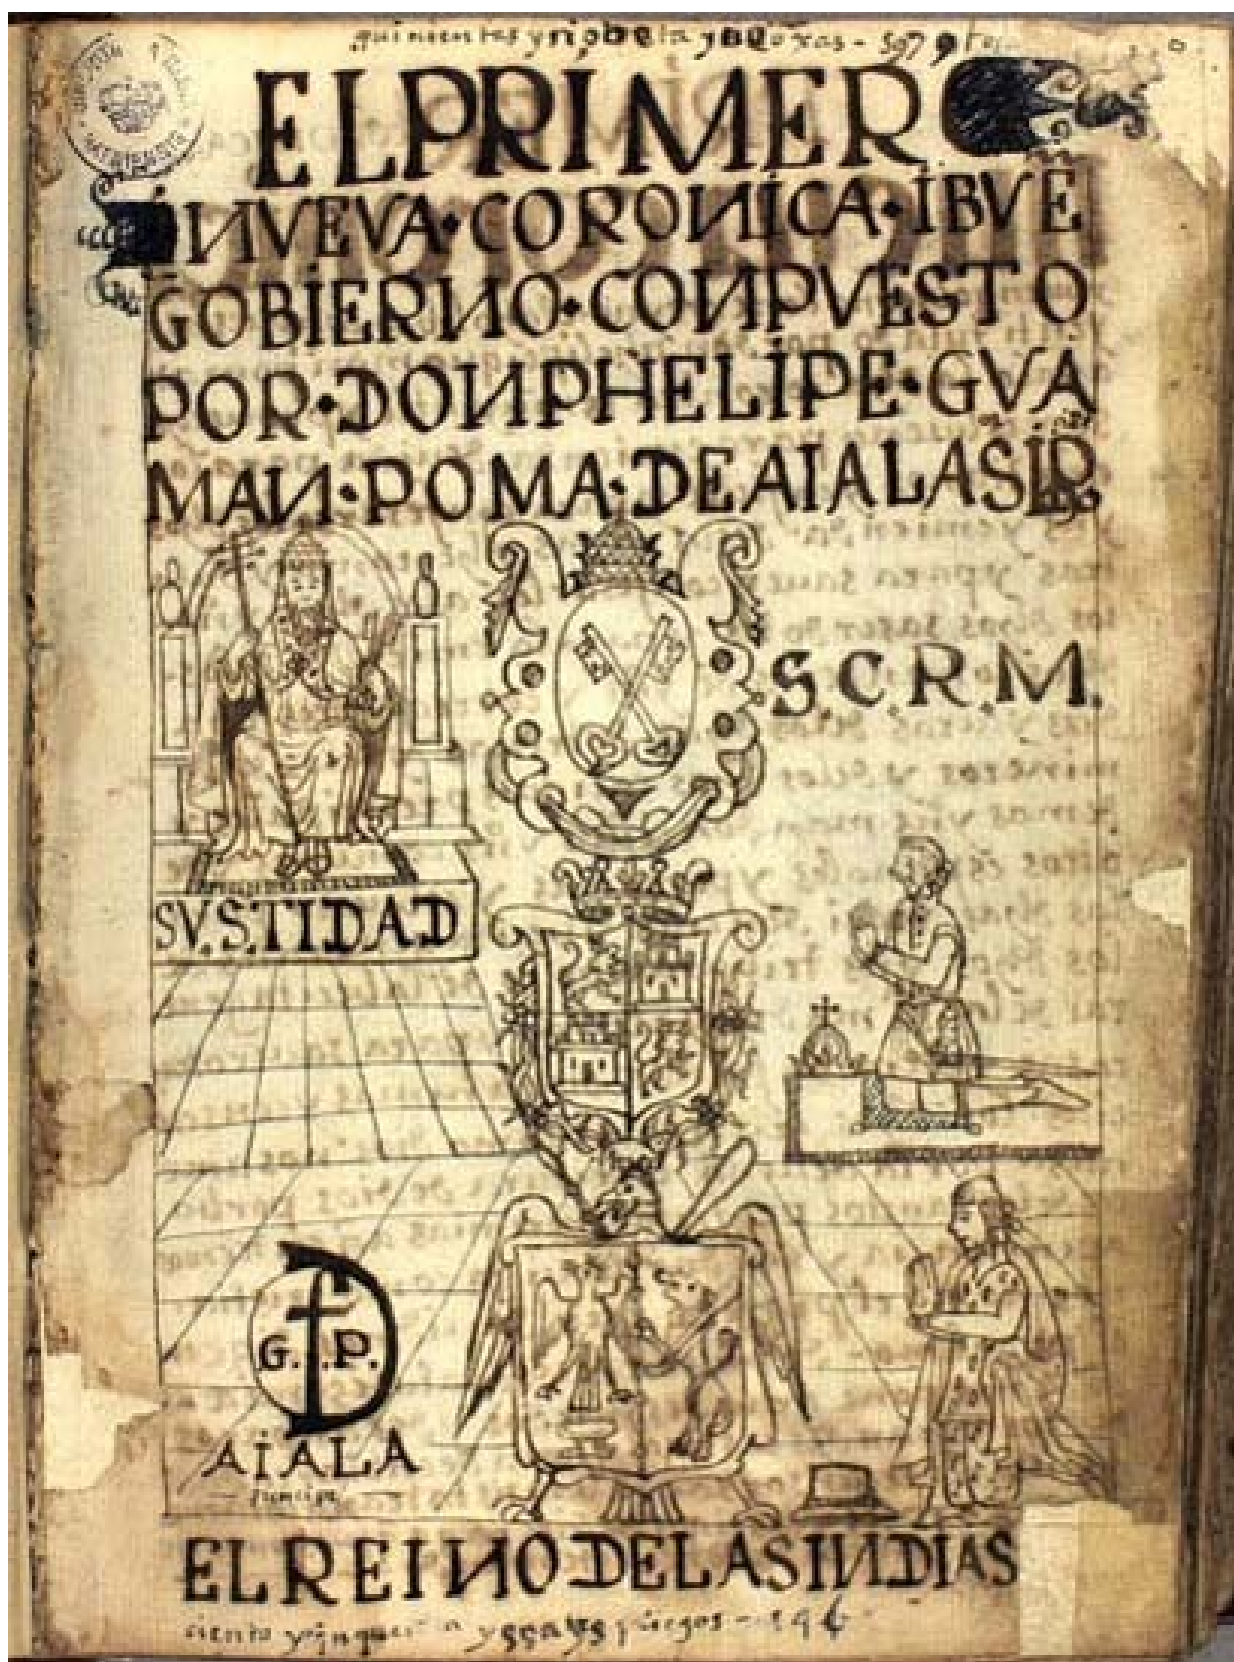 quinientas y nobeta y
EL PRIMER
NVEVA · CORONICA · I BVĒ
GOBIERNO · CONPVESTO
POR · DON PHELIPE · GVA
MAN · POMA · DE AIALA
S.C.R.M.
SV. S.TIDAD
G. P.
AIALA
principe
EL REINO DE LAS INDIAS
ciento y
pliegos - 146